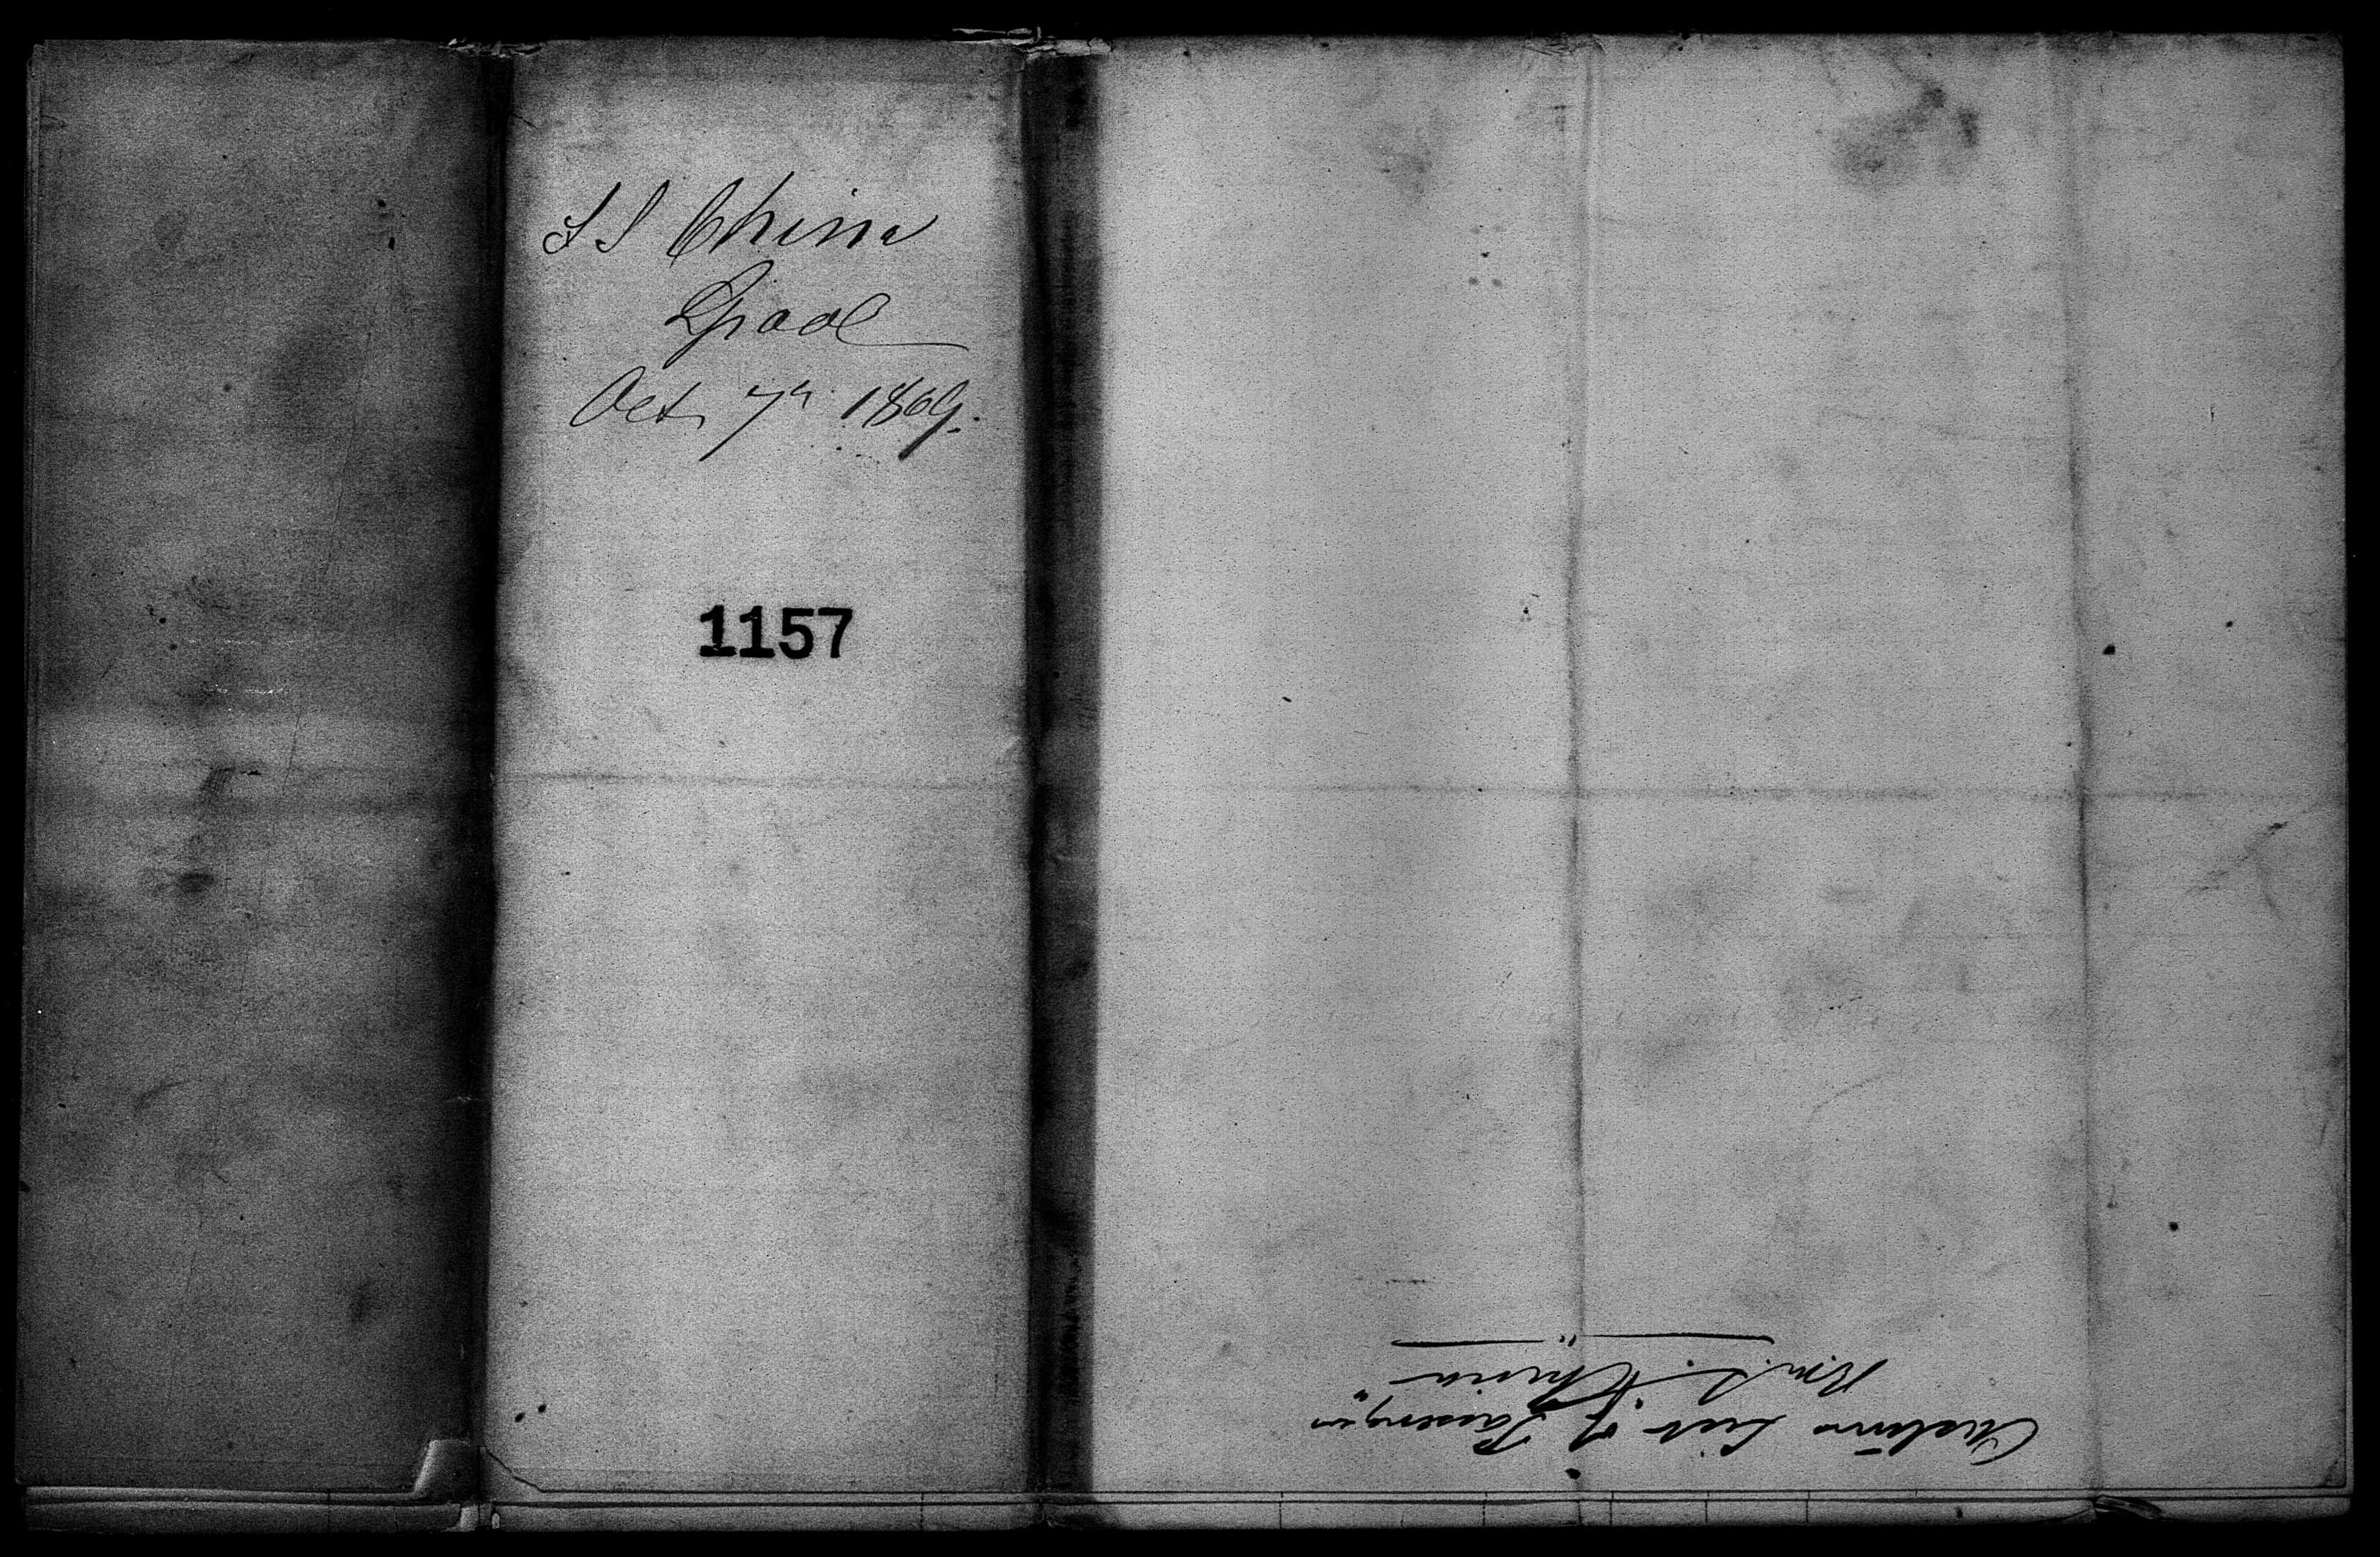 SS China
Lpool
Oct. 7th 1869.
1157
Customs List of Passengers
"R.M.S. China"